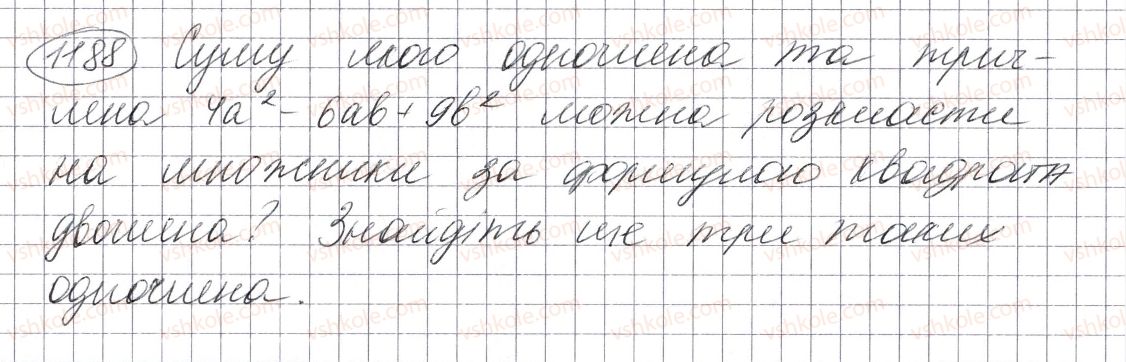 1188 Суму якого одночлена та трич-
лена 4a² - 6ab + 9b² можна розкласти
на множники за формулою квадрата
двочлена? Знайдіть ще три таких
одночлена.